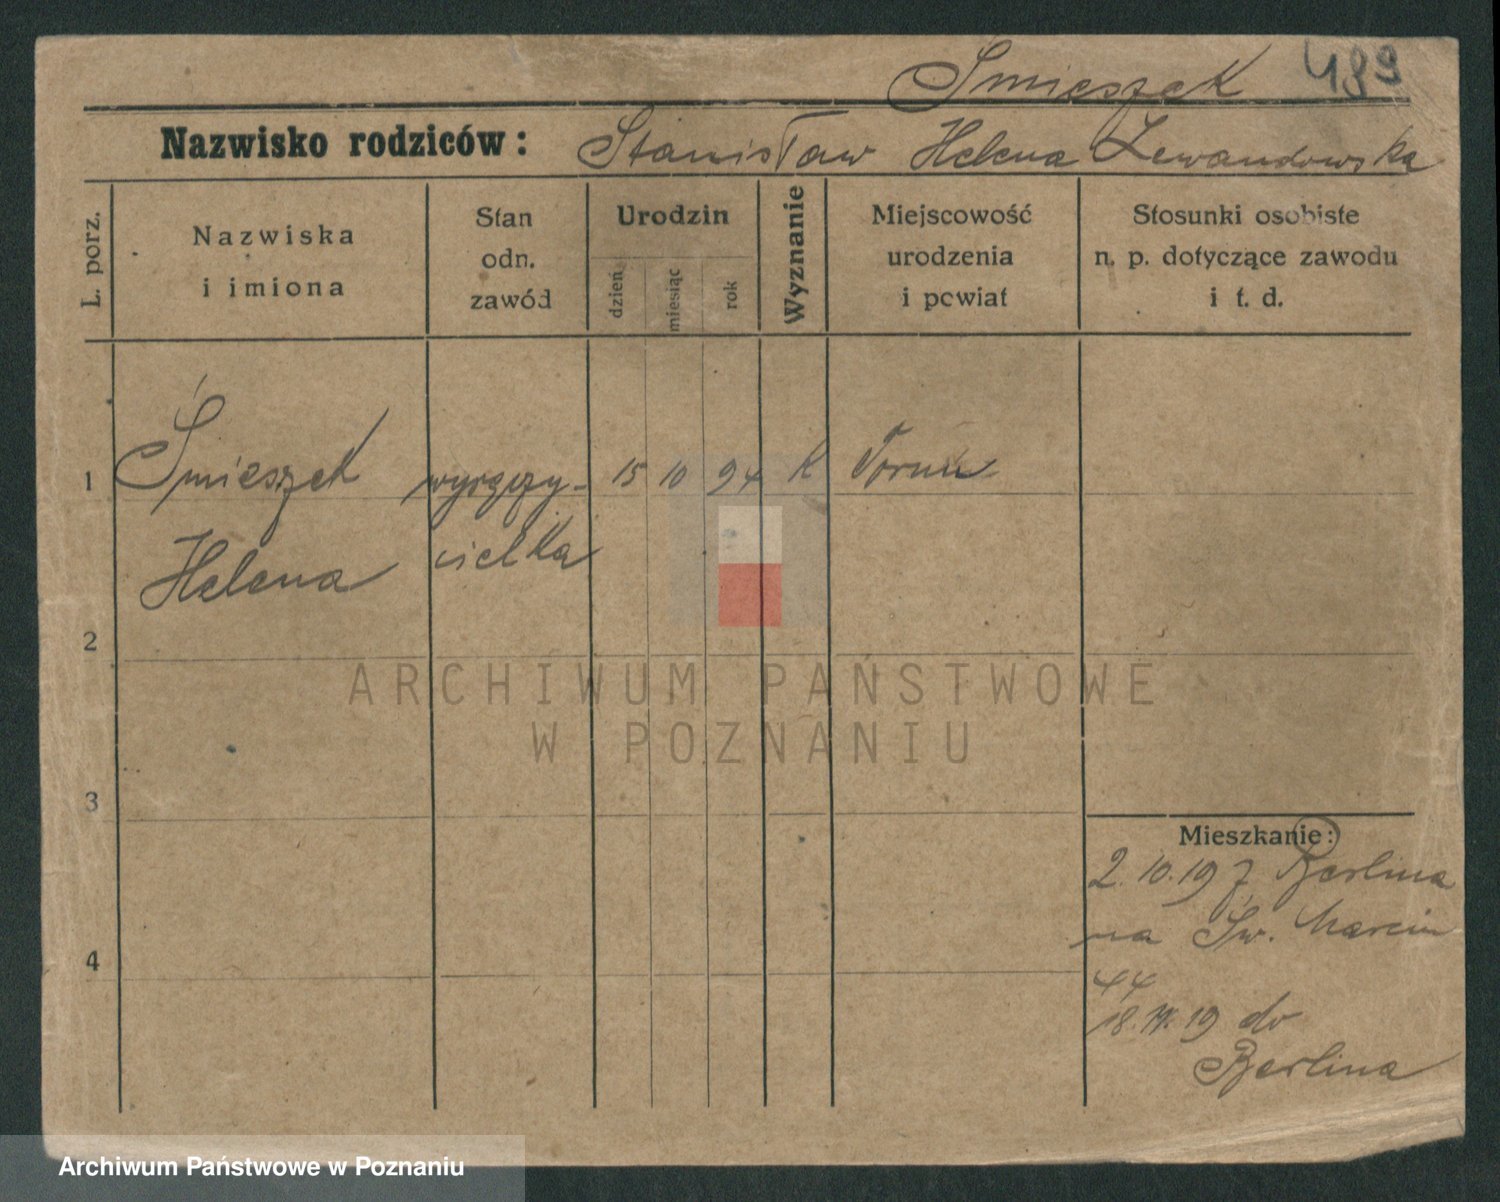 Smieszek 489
Nazwisko rodziców: Stanisław Helena Lewandowska
L. porz.
Nazwiska
i imiona
Stan
odn.
zawód
Urodzin
dzień
miesiąc
rok
Wyznanie
Miejscowość
urodzenia
i powiat
Stosunki osobiste
n. p. dotyczące zawodu
i t. d.
1 Śmieszek wyręczy- 15 10 94 K Toruń
Helena cielka
2
3
4
Mieszkanie:
2.10.19 z Berlina
na Św. Marcin
44
18. 19 do
Berlina
ARCHIWUM PAŃSTWOWE
W POZNANIU
Archiwum Państwowe w Poznaniu